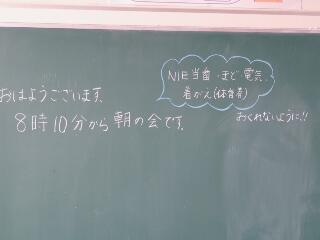 おはようございます。
8時10分から朝の会です。
NIE当番・まど・電気
着がえ(体育着)
おくれないように!!